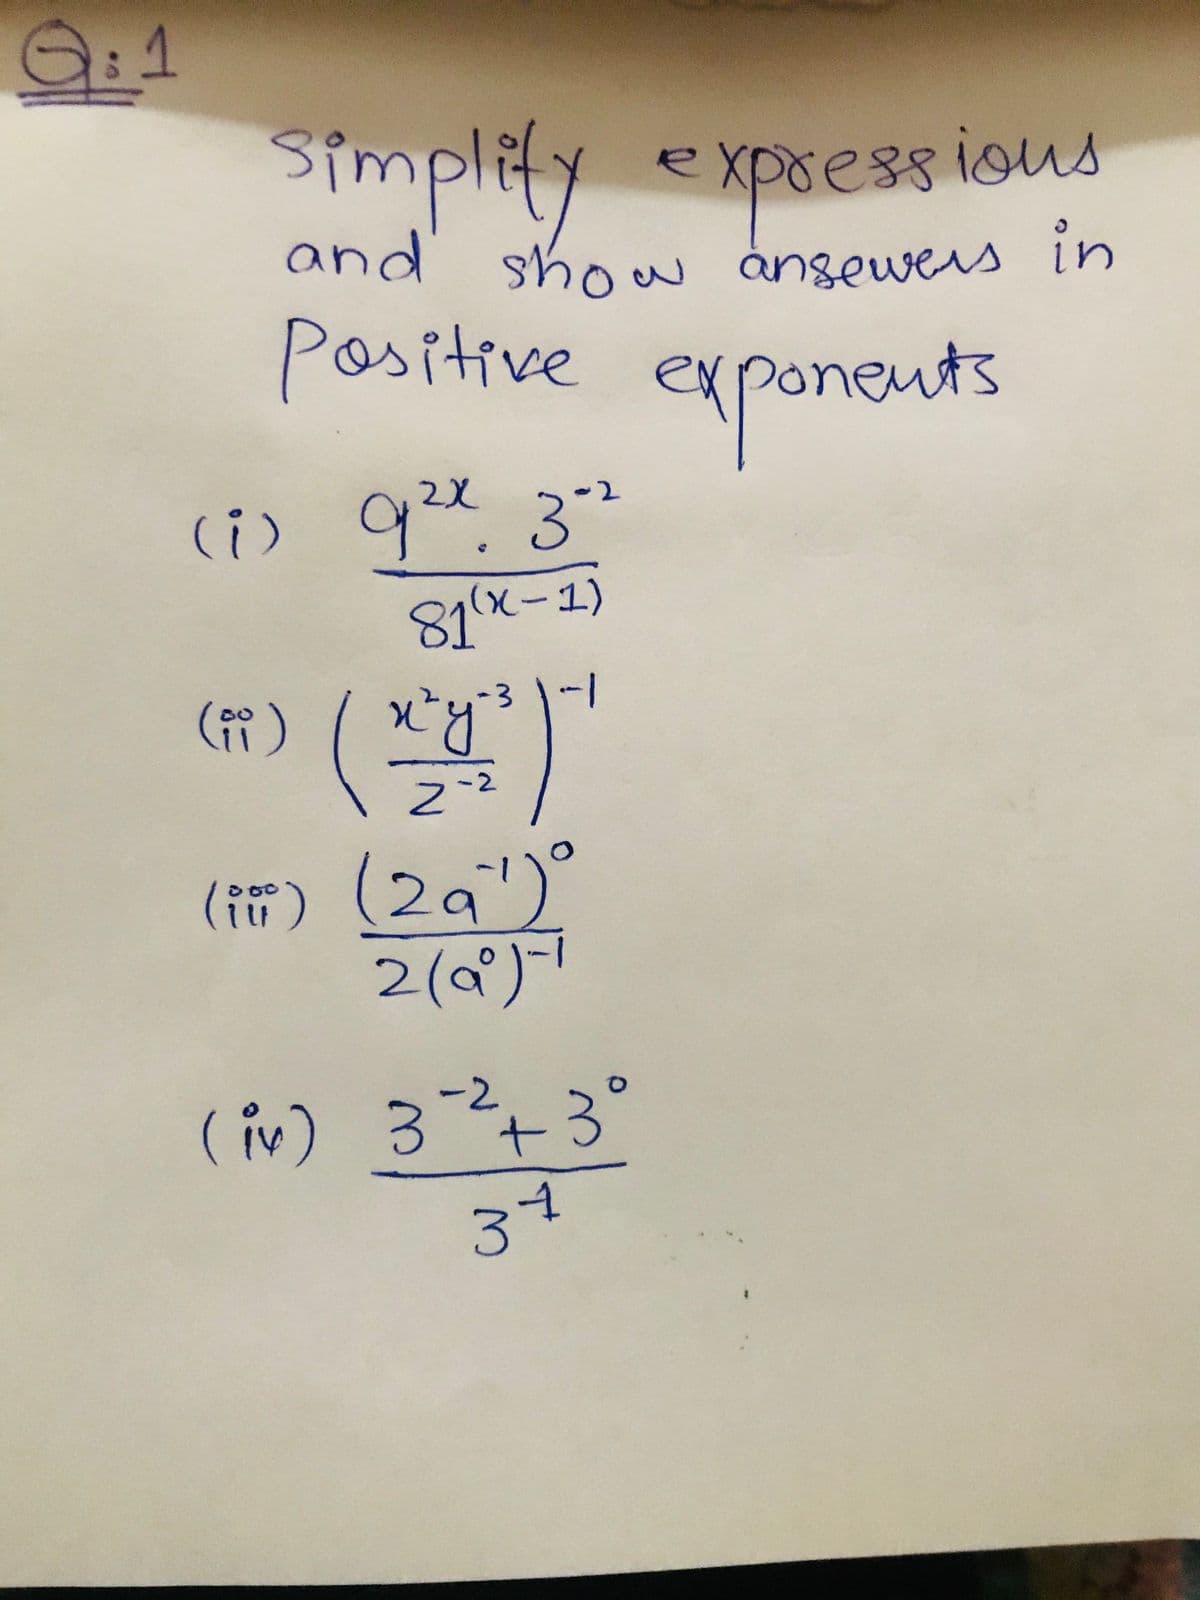 Q:1
Simplify expressions
and show ansewers in
Positive exponents
(i) 9^{2x} . 3^{-2}
81^{(x-1)}
(ii) ( x^2 y^{-3} )^{-1}
z^{-2}
(iii) (2a^{-1})^0
2(a^0)^{-1}
(iv) 3^{-2} + 3^0
3^{-1}